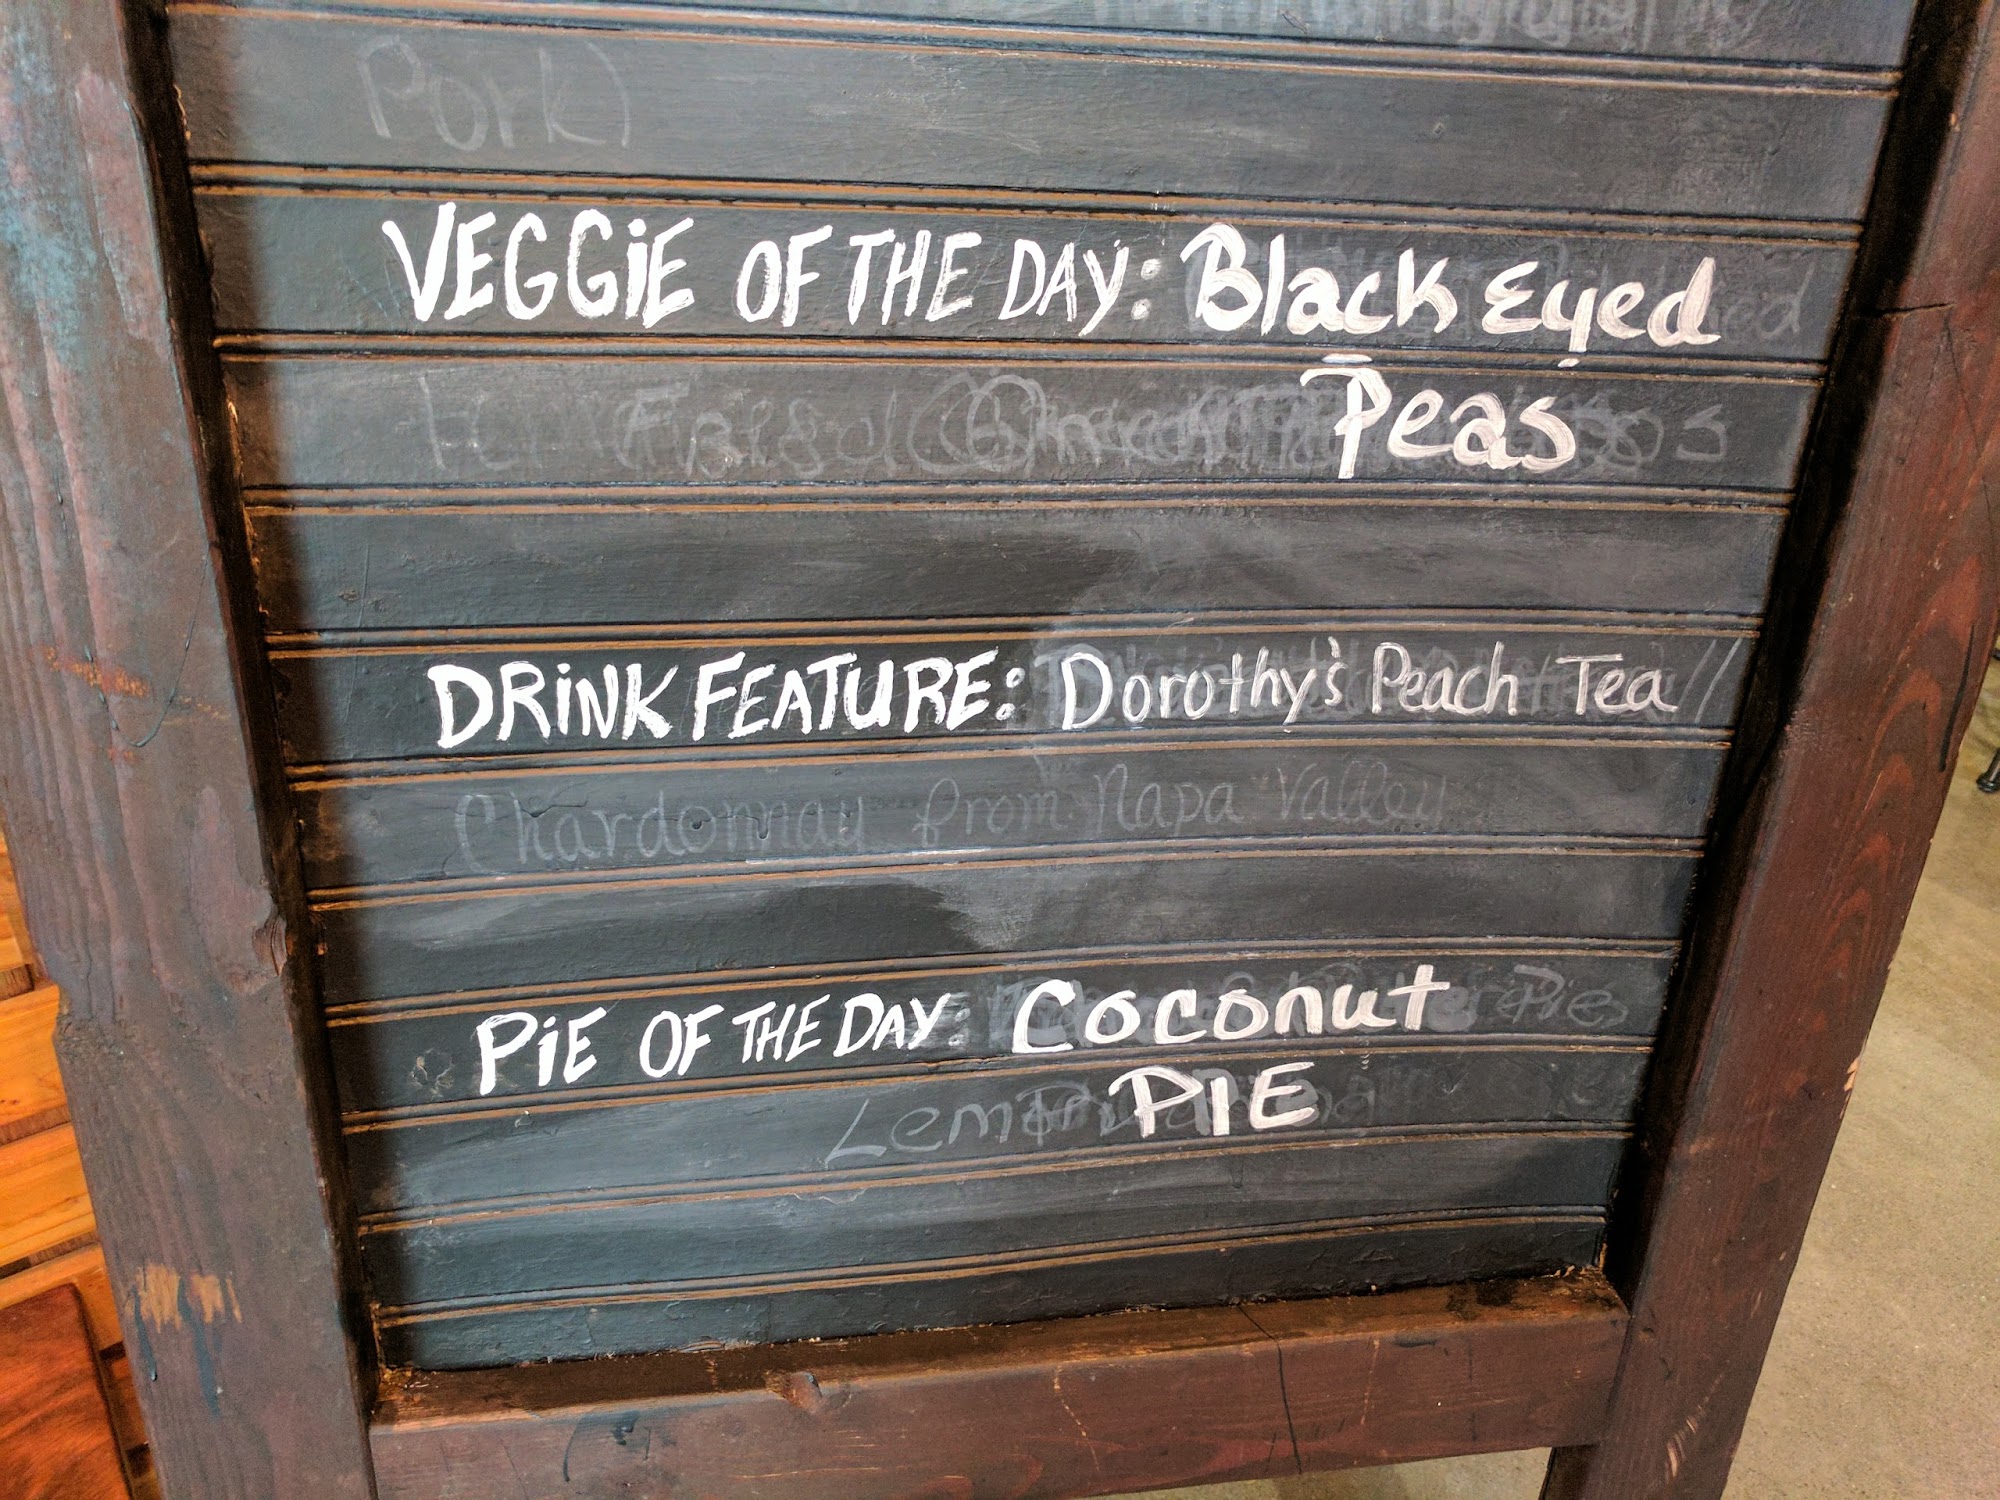 Pork)
VEGGiE OF THE DAY: Black Eyed
Peas
DRiNK FEATURE: Dorothy's Peach Tea
Chardonnay from Napa Valley
PiE OF THE DAY: Coconut
Pies
Lemon PIE